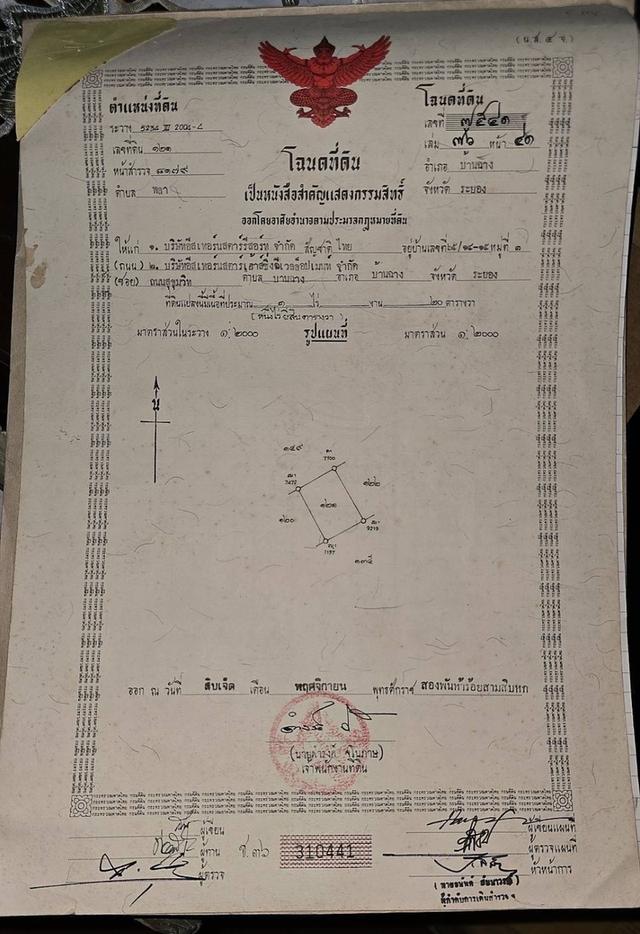 (น.ส.๔ จ.)
ตำแหน่งที่ดิน
ระวาง 5234 III 2004-C
เลขที่ดิน ๑๒๑
หน้าสำรวจ ๘๑๗๙
ตำบล พลา
โฉนดที่ดิน
เลขที่ ๗๕๔๑
เล่ม ๗๖ หน้า ๔๑
อำเภอ บ้านฉาง
จังหวัด ระยอง
โฉนดที่ดิน
เป็นหนังสือสำคัญแสดงกรรมสิทธิ์
ออกโดยอาศัยอำนาจตามประมวลกฎหมายที่ดิน
ให้แก่ ๑. บริษัทอีสเทอร์นสตาร์รีสอร์ท จำกัด สัญชาติ ไทย อยู่บ้านเลขที่ ๖๕/๑๔-๑๕ หมู่ที่ ๓
(ถนน) ๒. บริษัทอีสเทอร์นสตาร์ จำกัด
(ซอย) ถนนสุขุมวิท ตำบล บ้านฉาง อำเภอ บ้านฉาง จังหวัด ระยอง
ที่ดินแปลงนี้มีเนื้อที่ประมาณ ๑ ไร่ งาน ๒๐ ตารางวา
(หนึ่งไร่ยี่สิบตารางวา)
มาตราส่วนในระวาง ๑:๒๐๐๐ รูปแผนที่ มาตราส่วน ๑:๒๐๐๐
น
๑๔๙
7700
7472
๑๒๒
๑๒๑
๑๒๐
9219
1197
๑๓๕
ออก ณ วันที่ สิบเจ็ด เดือน พฤศจิกายน พุทธศักราช สองพันห้าร้อยสามสิบหก
เจ้าพนักงานที่ดิน
ผู้เขียน
ผู้ทาน
ผู้ตรวจ
ช.๓๖ 310441
ผู้เขียนแผนที่
ผู้ตรวจแผนที่
หัวหน้าการ